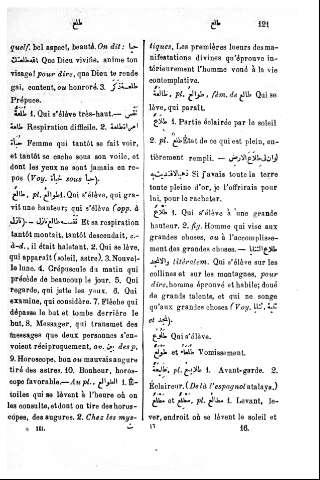 طلع
طلع
121
quelf. bel aspect, beauté. On dit: حيا
الله طلعتك Que Dieu vivifie, anime ton
visage! pour dire, que Dieu te rende
gai, content, ou honoré. 3.
Prépuce.
1. Qui s'élève très-haut.—
Respiration difficile. 2.
Femme qui tantôt se fait voir,
et tantôt se cache sous son voile, et
dont les yeux ne sont jamais en re-
pos (Voy. sous).
طالع, pl. 1. Qui s'élève, qui gra-
vit une hauteur; qui s'élève (opp. à
). Et sa respiration
tantôt montait, tantôt descendait, c.-
à-d., il était haletant. 2. Qui se lève,
qui apparaît (soleil, astre). 3. Nouvel-
le lune. 4. Crépuscule du matin qui
précède de beaucoup le jour. 5. Qui
regarde, qui jette les yeux. 6. Qui
examine, qui considère. 7. Flèche qui
dépasse le but et tombe derrière le
but. 8. Messager, qui transmet des
messages que deux personnes s'en-
voient réciproquement, av. بين des p.
9. Horoscope, bon ou mauvais augure
tiré des astres. 10. Bonheur, horos-
cope favorable.— Au pl., الطوالع 1. É-
toiles qui se lèvent à l'heure où on
les consulte, et dont on tire des horos-
copes, des augures. 2. Chez les mys-
III.
tiques, Les premières lueurs des ma-
nifestations divines qu'éprouve in-
térieurement l'homme voué à la vie
contemplative.
طالعة, pl. طوالع, fém. de طالع Qui se
lève, qui paraît.
طلاع 1. Partie éclairée par le soleil
2. pl. État de ce qui est plein, en-
tièrement rempli. —
Si j'avais toute la terre
toute pleine d'or, je l'offrirais pour
lui, pour le racheter.
طلاع 1. Qui s'élève à une grande
hauteur. 2. fig. Homme qui vise aux
grandes choses, ou à l'accomplisse-
ment des grandes choses. —
littéralem. Qui s'élève sur les
collines et sur les montagnes, pour
dire, homme éprouvé et habile; doué
de grands talents, et qui ne songe
qu'aux grandes choses (Voy.
et).
طلوع Qui s'élève.
et طلعاء Vomissement.
طليعة, pl. طلائع 1. Avant-garde. 2.
Éclaireur. (De là l'espagnol atalaya.)
مطلع et مطلع, pl. مطالع 1. Levant, le-
ver, endroit où se lèvent le soleil et
16.